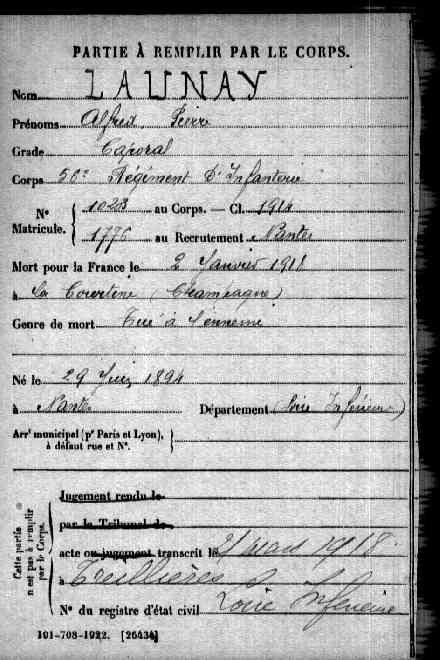 PARTIE À REMPLIR PAR LE CORPS.
Nom LAUNAY
Prénoms Alfred, Pierre
Grade Caporal
Corps 50e Régiment d'Infanterie
N° Matricule. { 10203 au Corps. — Cl. 1914
1776 au Recrutement Nantes
Mort pour la France le 2 Janvier 1918
à la Courtine (Champagne)
Genre de mort Tué à l'ennemi
Né le 29 Juin 1894
à Nantes Département (Loire Inférieure)
Arrt municipal (pr Paris et Lyon), à défaut rue et N°. }
Cette partie n'est pas à remplir par le Corps.
Jugement rendu le
par le Tribunal de
acte ou jugement transcrit le 21 mars 1918
à Treillières
Loire Inférieure
N° du registre d'état civil
101-708-1922. [26434]